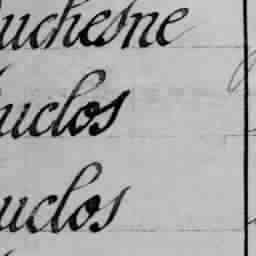 uchesne
uclos
uclos